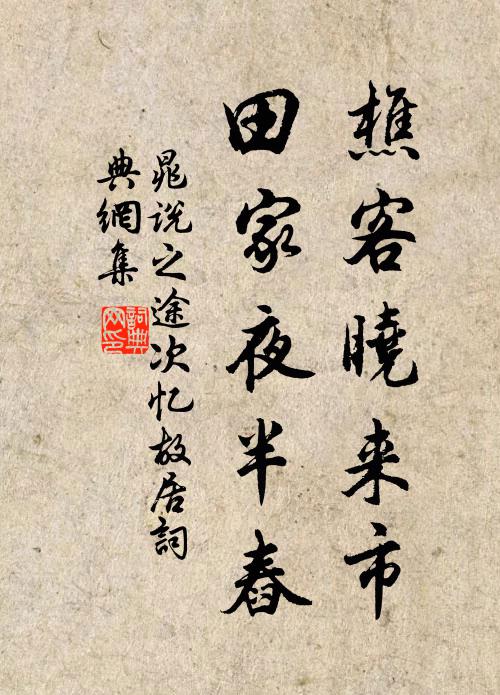 樵客曉来市
田家夜半舂
晁說之途次忆故居詞
典網集
詞典
网印